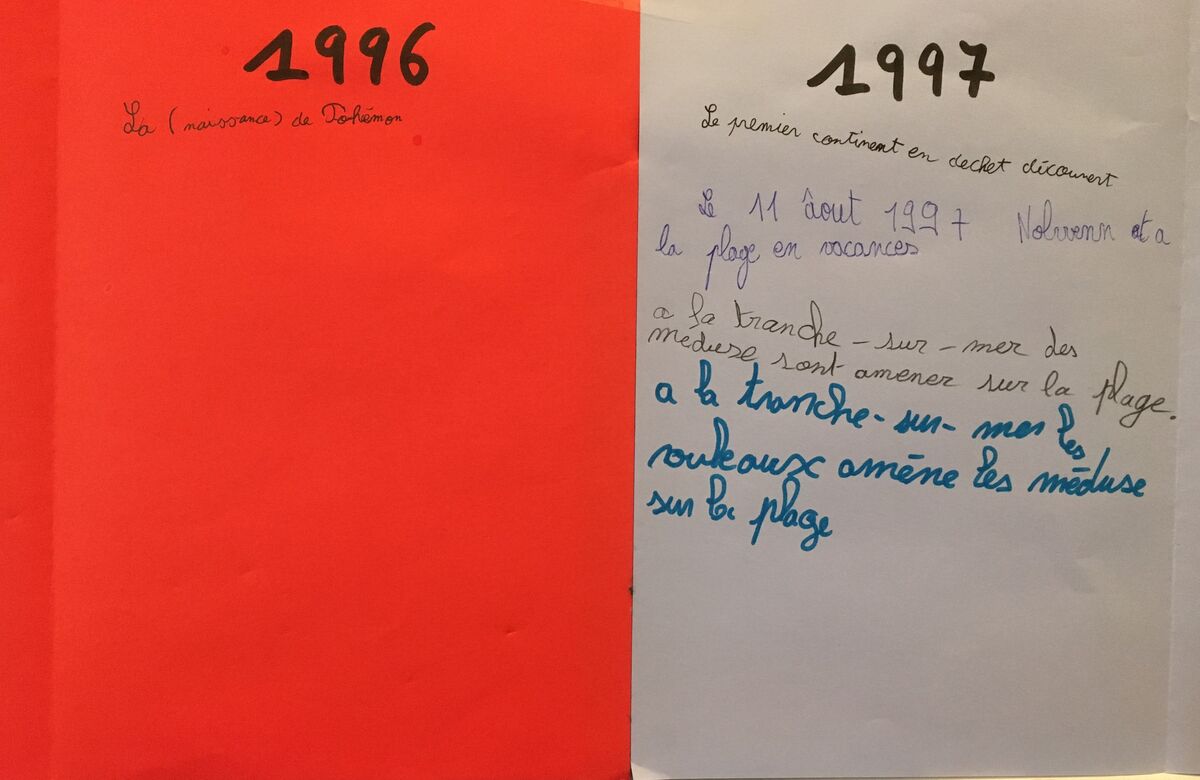 1996
La (naissance) de Pokémon
1997
Le premier continent en dechet découvert
Le 11 âout 1997 Nolwenn et a
la plage en vacances
a la tranche-sur-mer des
meduse sont amener sur la plage.
a la tranche-sur-mer les
rouleaux amène les méduse
sur la plage